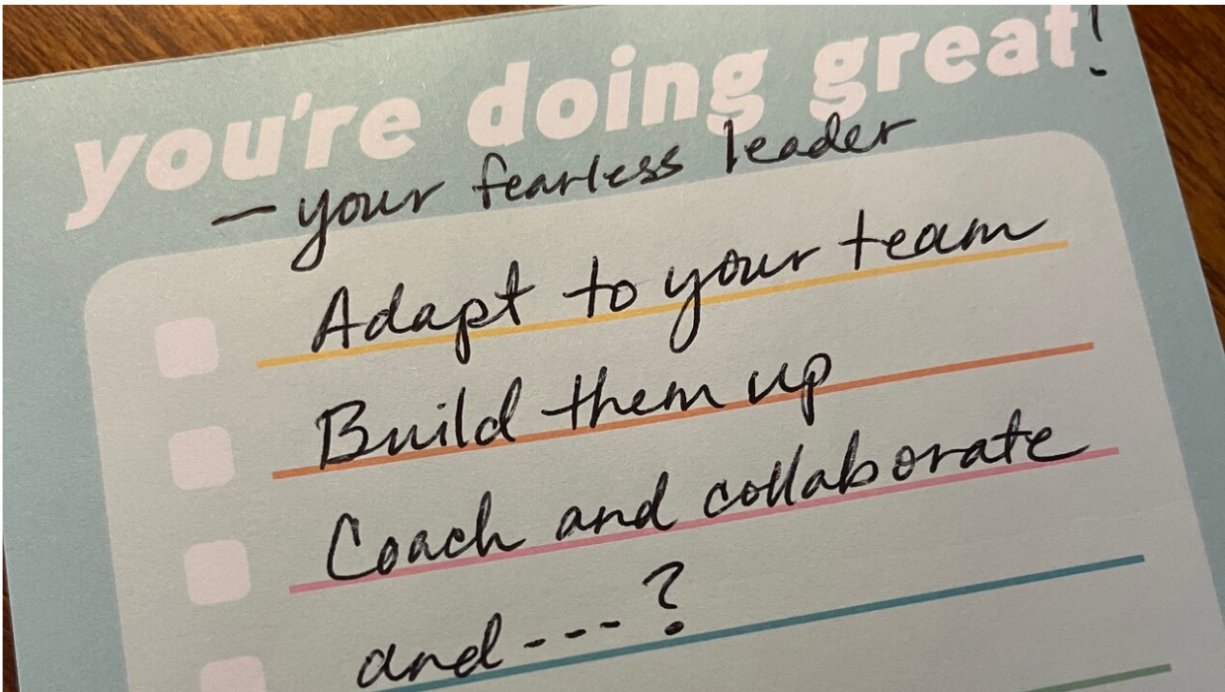 you're doing great!
— your fearless leader
Adapt to your team
Build them up
Coach and collaborate
and ---?